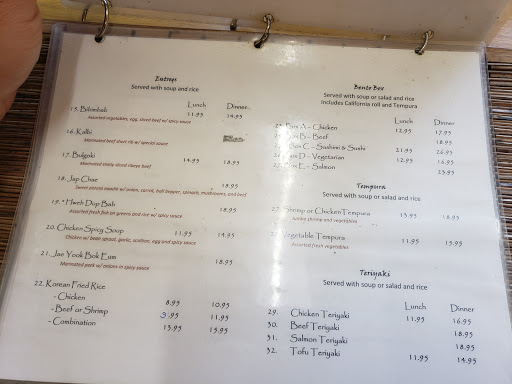 Entrees
Served with soup and rice
Lunch Dinner
15. Bibimbab 11.95 14.95
Assorted vegetables, egg, sliced beef w/ spicy sauce
16. Kalbi
Marinated beef short rib w/ special sauce
17. Bulgoki 14.95 18.95
Marinated thinly sliced ribeye beef
18. Jap Chae 18.95
Sweet potato noodle w/ onion, carrot, bell pepper, spinach, mushroom, and beef
19. * Hweh Dop Bab 18.95
Assorted fresh fish on greens and rice w/ spicy sauce
20. Chicken Spicy Soup 11.95 14.95
Chicken w/ bean sprout, garlic, scallion, egg and spicy sauce
21. Jae Yook Bok Eum 18.95
Marinated pork w/ onions in spicy sauce
22. Korean Fried Rice
- Chicken 8.95 10.95
- Beef or Shrimp 9.95 11.95
- Combination 13.95 15.95
Bento Box
Served with soup or salad and rice
Includes California roll and Tempura
Lunch Dinner
Box A – Chicken 12.95 17.95
Box B – Beef 18.95
Box C – Sashimi & Sushi 21.95 26.95
Box D – Vegetarian 12.95 16.95
Box E – Salmon 23.95
Tempura
Served with soup or salad and rice
Shrimp or Chicken Tempura 13.95 18.95
Jumbo shrimp and vegetables
Vegetable Tempura 11.95 15.95
Assorted fresh vegetables
Teriyaki
Served with soup or salad and rice
Lunch Dinner
29. Chicken Teriyaki 11.95 16.95
30. Beef Teriyaki 18.95
31. Salmon Teriyaki 18.95
32. Tofu Teriyaki 11.95 14.95